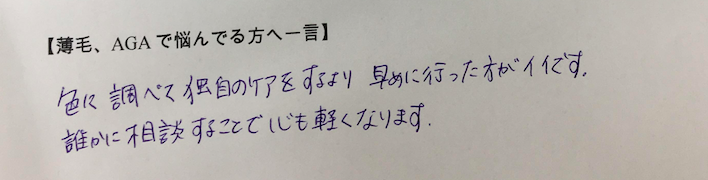 【薄毛、AGAで悩んでる方へ一言】
色に調べて独自のケアをするより 早めに行った方がイイです。
誰かに相談することで心も軽くなります.